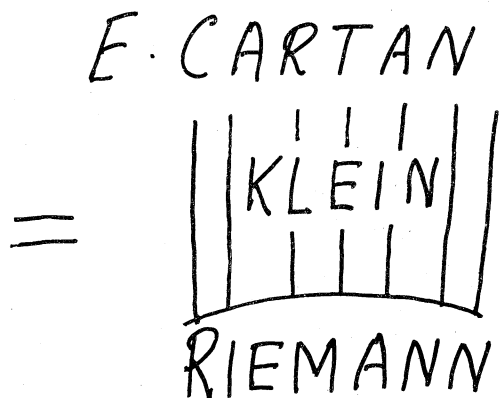 E. CARTAN
=
KLEIN
RIEMANN